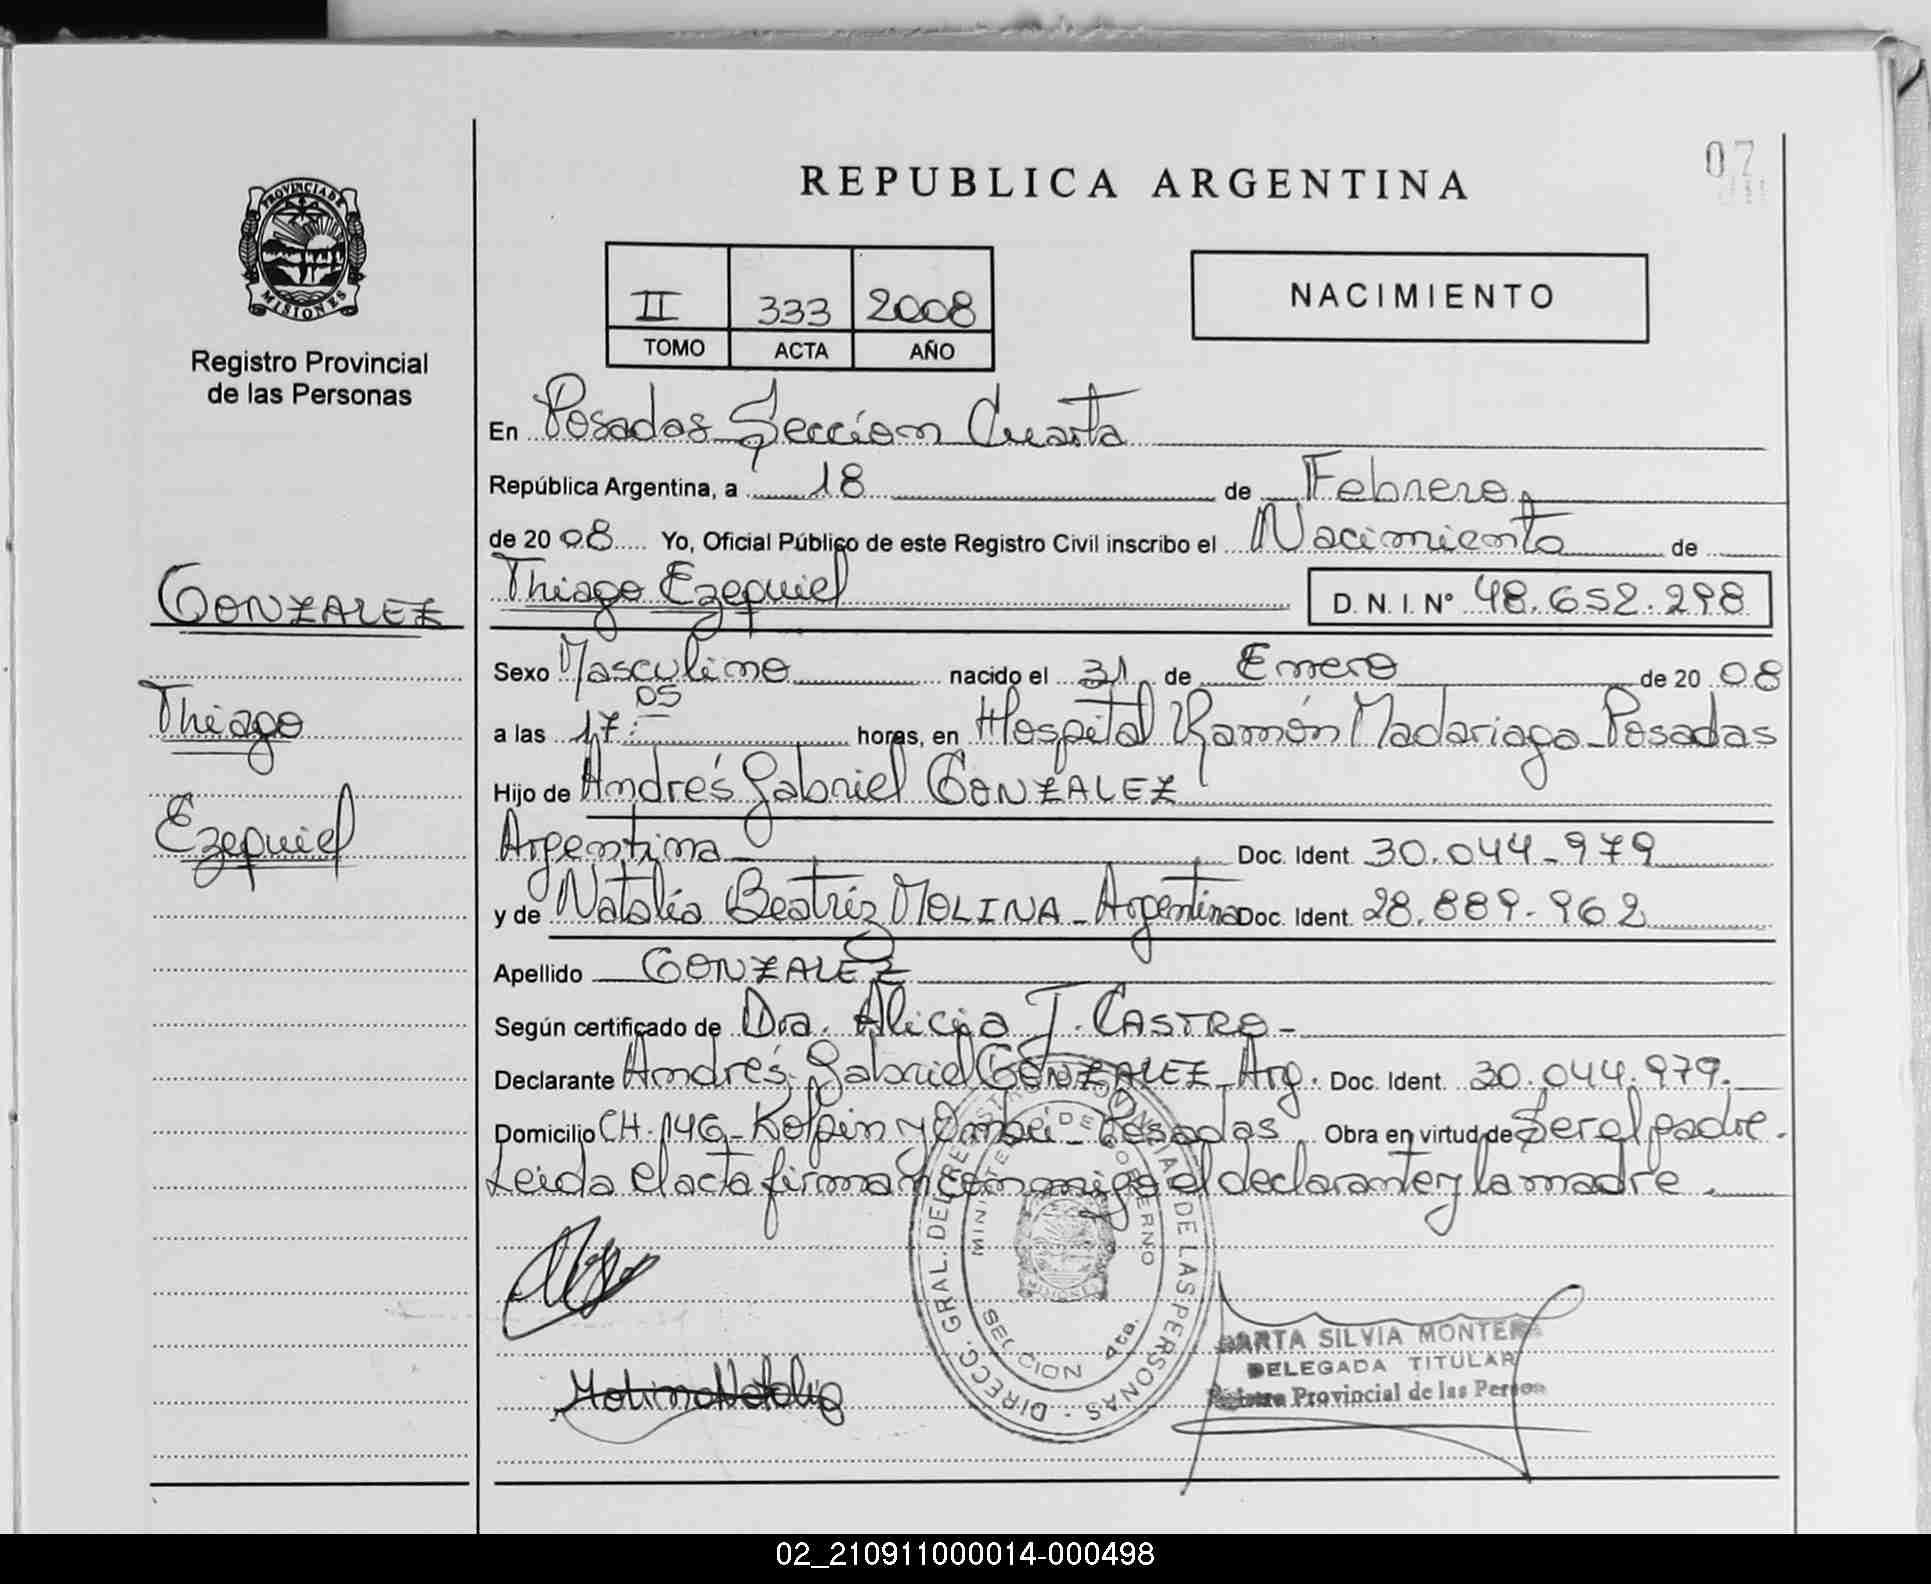 07
REPUBLICA ARGENTINA
PROVINCIA DE MISIONES
Registro Provincial
de las Personas
II 333 2008
TOMO ACTA AÑO
NACIMIENTO
En Posadas Sección Cuarta
República Argentina, a 18 de Febrero
de 2008 Yo, Oficial Público de este Registro Civil inscribo el Nacimiento de
GONZALEZ
Thiago Ezequiel D.N.I. N° 48.652.298
Sexo Masculino nacido el 31 de Enero de 2008
Thiago
a las 17:05 horas, en Hospital Ramón Madariaga_Posadas
Hijo de Andrés Gabriel GONZALEZ
Ezequiel
Argentina Doc. Ident. 30.044.979
y de Natalia Beatriz MOLINA_Argentina Doc. Ident. 28.889.962
Apellido GONZALEZ
Según certificado de Dra. Alicia J. CASTRO-
Declarante Andrés Gabriel GONZALEZ_Arg. Doc. Ident. 30.044.979.
Domicilio CH.146_Kolpin y Ombú_Posadas Obra en virtud de Ser el padre.
Leida el acta firman conmigo el declarante y la madre.
DIRECC. GRAL. DEL REGISTRO PROVINCIAL DE LAS PERSONAS -
MINISTERIO DE GOBIERNO
SECCION 4ta.
Molina Natalia
MARTA SILVIA MONTERO
DELEGADA TITULAR
Registro Provincial de las Personas
02_210911000014-000498